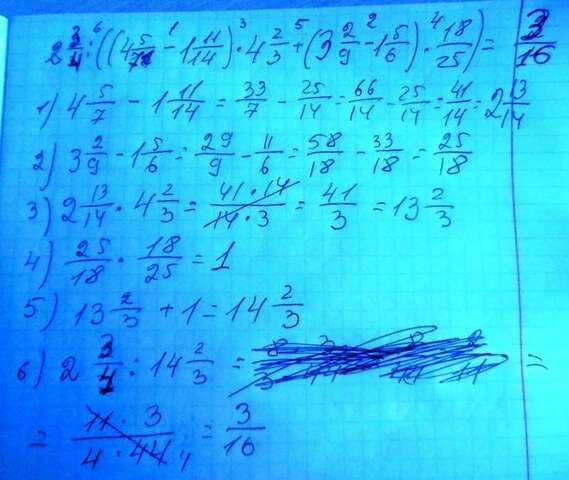 2 3/4 : ((4 5/7 - 1 11/14) · 4 2/3 + (3 2/9 - 1 5/6) · 18/25) = 3/16
1) 4 5/7 - 1 11/14 = 33/7 - 25/14 = 66/14 - 25/14 = 41/14 = 2 13/14
2) 3 2/9 - 1 5/6 = 29/9 - 11/6 = 58/18 - 33/18 = 25/18
3) 2 13/14 · 4 2/3 = 41 · 14/14 · 3 = 41/3 = 13 2/3
4) 25/18 · 18/25 = 1
5) 13 2/3 + 1 = 14 2/3
6) 2 3/4 : 14 2/3 = =
= 11 · 3/4 · 44 4 = 3/16